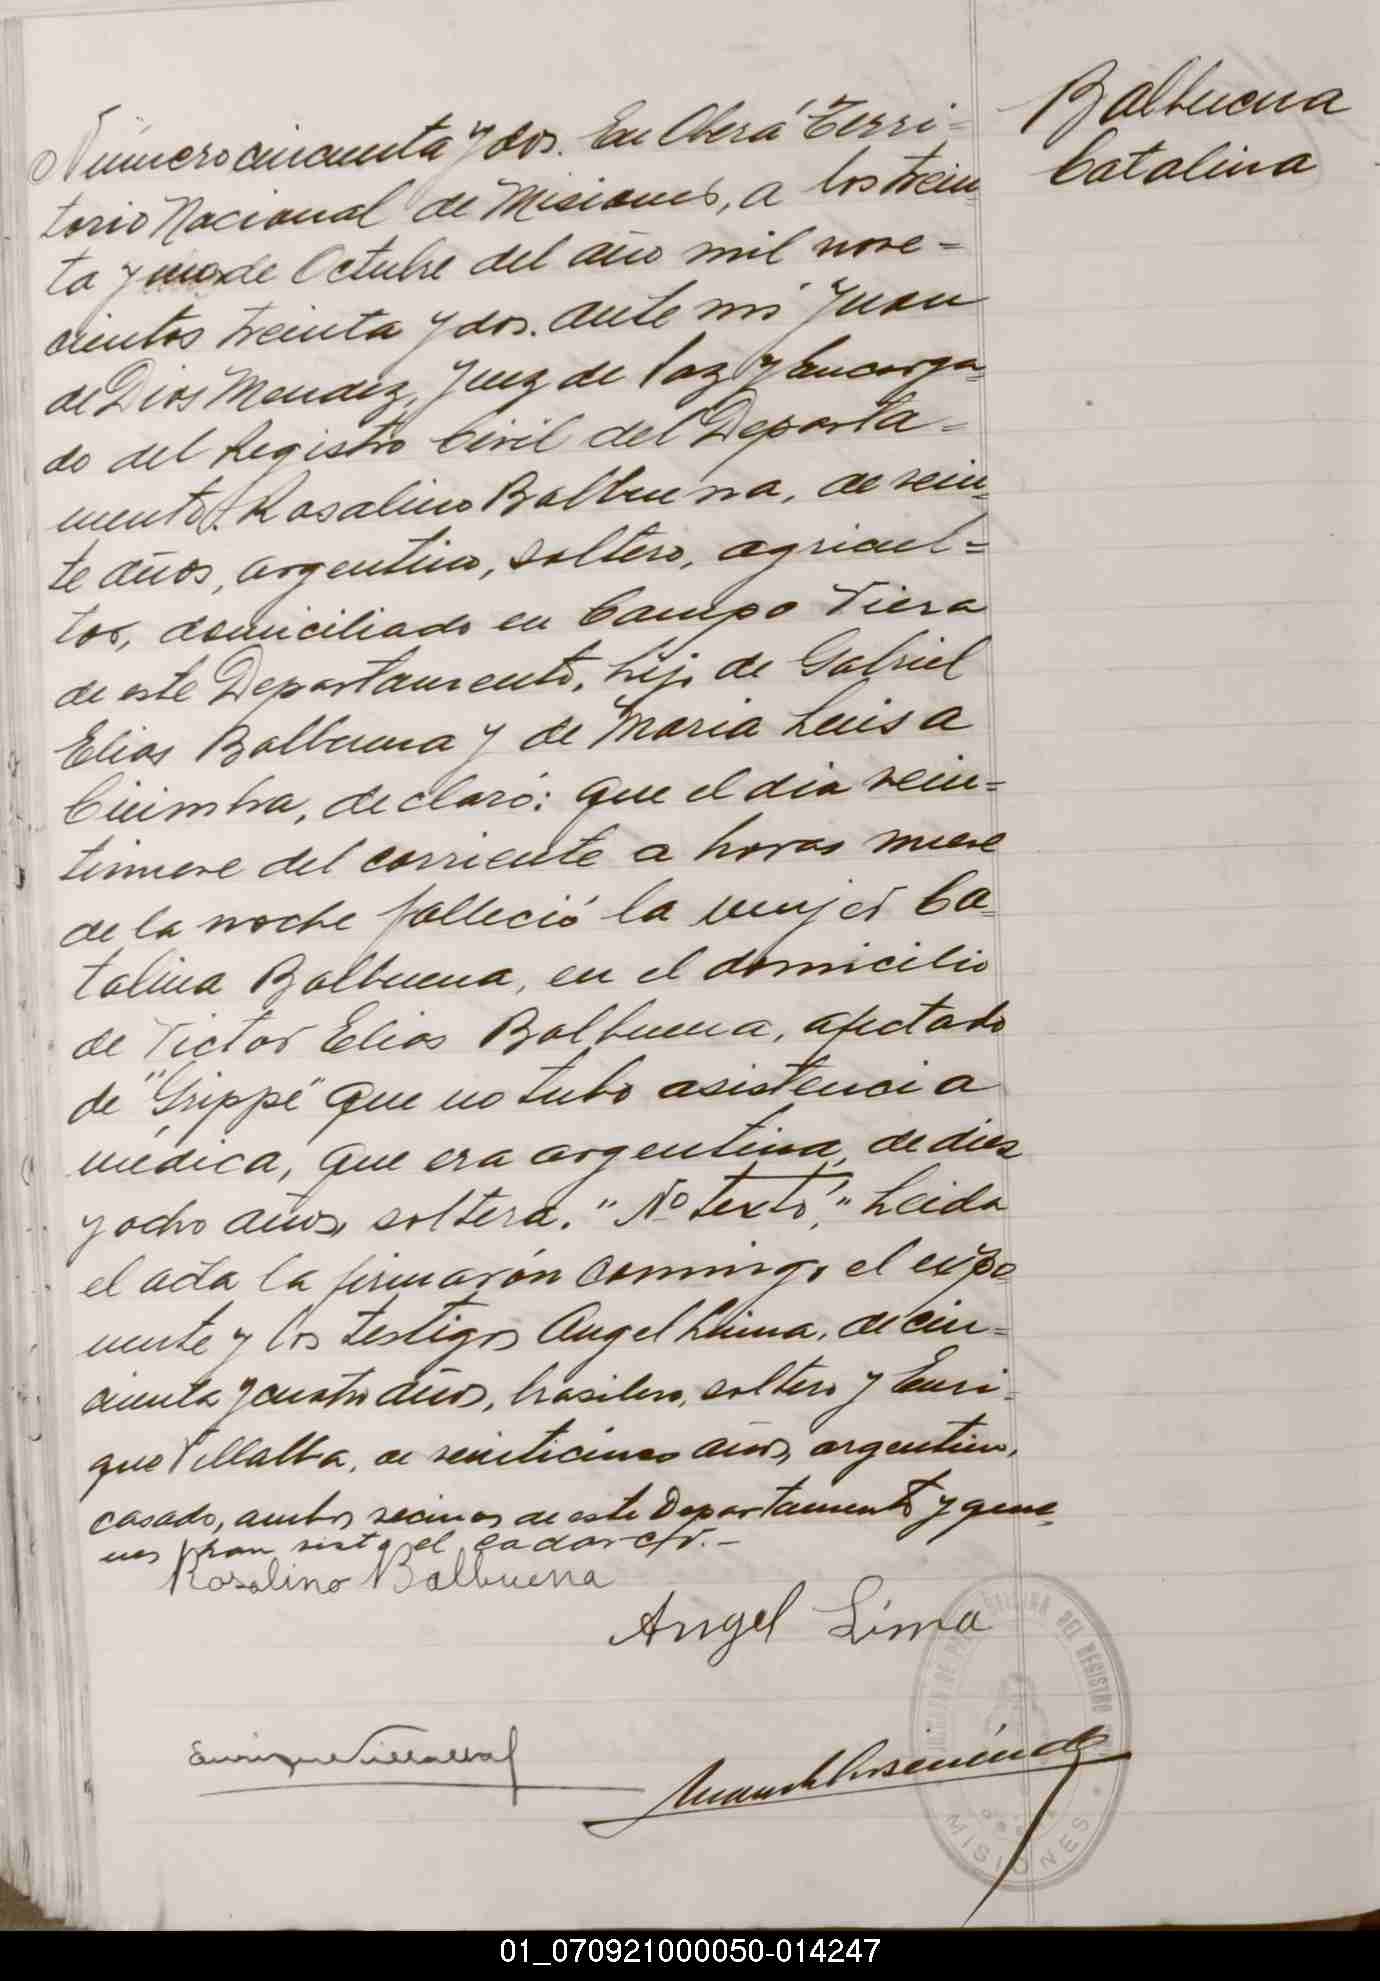 Balbuena
Catalina
Número cincuenta y dos. En Oberá Terri=
torio Nacional de Misiones, a los trein
ta y uno de Octubre del año mil nove=
cientos treinta y dos. ante mi Juan
de Dios Mendez, Juez de Paz y Encarga=
do del Registro Civil del Departa=
mento, Rosalino Balbuena, de vein=
te años, argentino, soltero, agricul=
tor, domiciliado en Campo Viera
de este Departamento, hijo de Gabriel
Elias Balbuena y de Maria Luisa
declaró: que el dia vein=
tinueve del corriente a horas nueve
de la noche falleció la mujer Ca=
talina Balbuena, en el domicilio
de Victor Elias Balbuena, afectado
de "Grippe" que no tubo asistencia
médica, que era argentina, de dies
y ocho años, soltera. "No testó," Leida
el acta la firmarón conmigo el expo
nente y los testigos Angel Lima, de cin=
cuenta y cuatro años, brasilero, soltero y Enri=
que Villalba, de veinticinco años, argentino,
casado, ambos vecinos de este Departamento y quie=
nes han visto el cadaver.–
Rosalino Balbuena
Angel Lima
Enrique Villalba
MISIONES
01_070921000050-014247